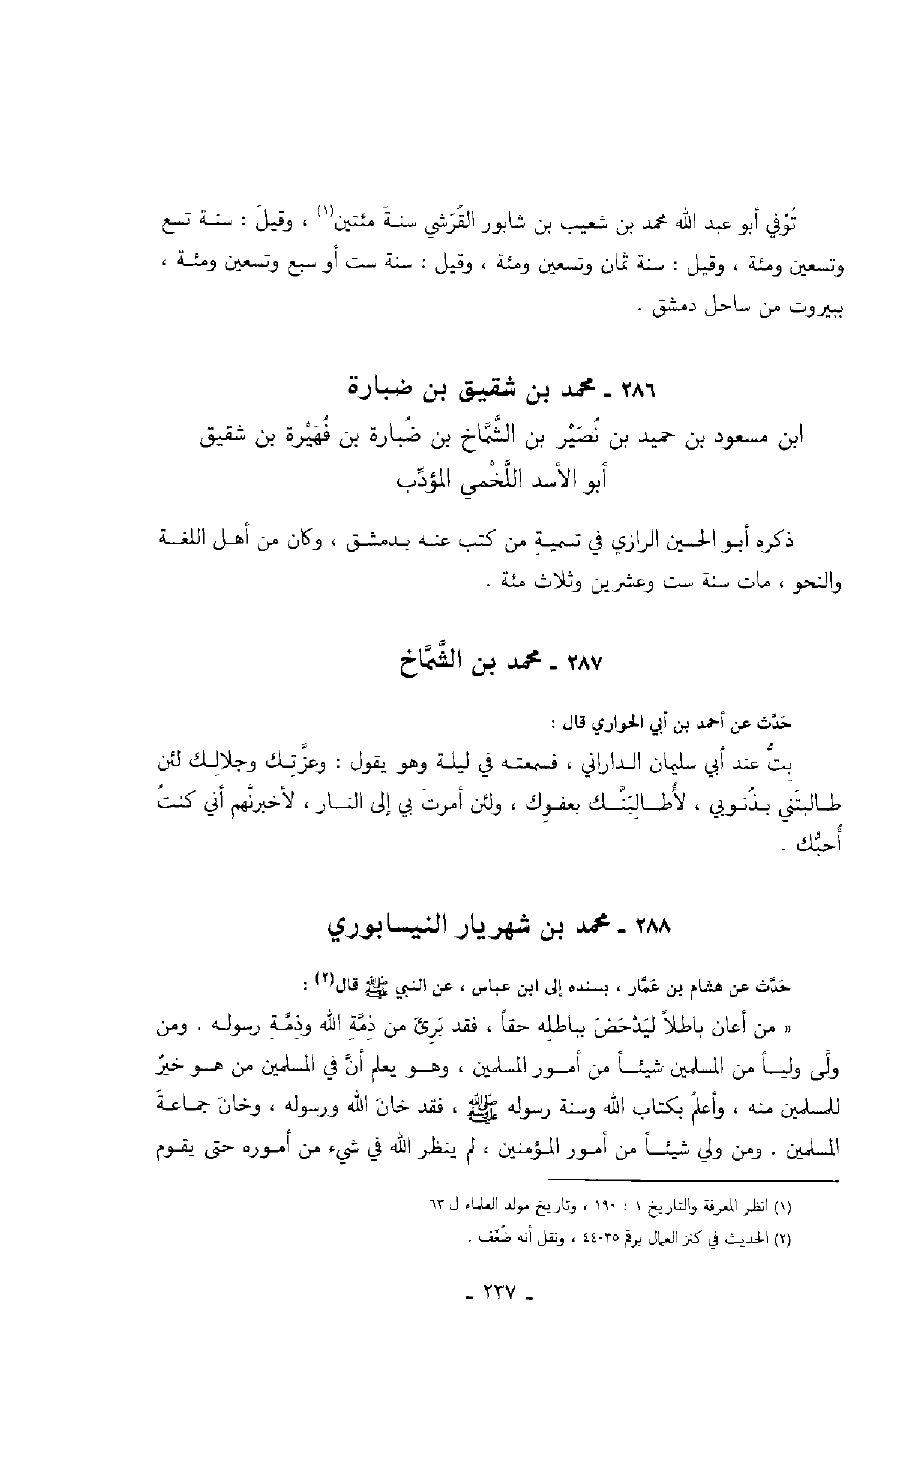 تُوُفي أبو عبد الله محمد بن شعيب بن شابور القُرَشي سنةَ مئتين(١) ، وقيلَ : سنة تسع
وتسعين ومئة ، وقيل : سنة ثمان وتسعين ومئة ، وقيل : سنة ست أو سبع وتسعين ومئة ،
ببيروت من ساحل دمشق .
٢٨٦ ـ محمد بن شقيق بن ضبارة
ابن مسعود بن حميد بن نُصَيْر بن الشَّمَّاخ بن ضُبارة بن فُهَيْرة بن شقيق
أبو الأسد اللَّخْمي المؤدِّب
ذكره أبو الحسين الرازي في تسمية من كتب عنه بدمشق ، وكان من أهل اللغة
والنحو ، مات سنة ست وعشرين وثلاث مئة .
٢٨٧ ـ محمد بن الشَّمَّاخ
حَدَّث عن أحمد بن أبي الحواري قال :
بِتُّ عند أبي سليمان الداراني ، فسمعته في ليلة وهو يقول : وعزَّتِك وجلالِك لئن
طالبتَني بذُنوبي ، لأُطالِبَنَّك بعفوك ، ولئن أمرتَ بي إلى النار ، لأخبرنَّهم أني كنتُ
أحبُّك .
٢٨٨ ـ محمد بن شهريار النيسابوري
حدَّث عن هشام بن عمَّار ، بسنده إلى ابن عباس ، عن النبي ﷺ قال(٢) :
« من أعان باطلاً ليَدْحَضَ بباطله حقاً ، فقد بَرِئَ من ذِمَّةِ الله وذِمَّة رسوله . ومن
ولَّى ولياً من المسلمين شيئاً من أمور المسلمين ، وهو يعلم أنَّ في المسلمين من هو خيرٌ
للمسلمين منه ، وأعلمُ بكتاب الله وسنة رسوله ﷺ ، فقد خانَ الله ورسوله ، وخانَ جماعةَ
المسلمين . ومن ولي شيئاً من أمور المؤمنين ، لم ينظر الله في شيء من أموره حتى يقوم
(١) انظر المعرفة والتاريخ ١ : ١٩٠ ، وتاريخ مولد العلماء ل ٦٣
(٢) الحديث في كنز العمال برقم ٤٤٠٣٥ ، ونقل أنه ضُعِّف .
ـ ٢٣٧ ـ